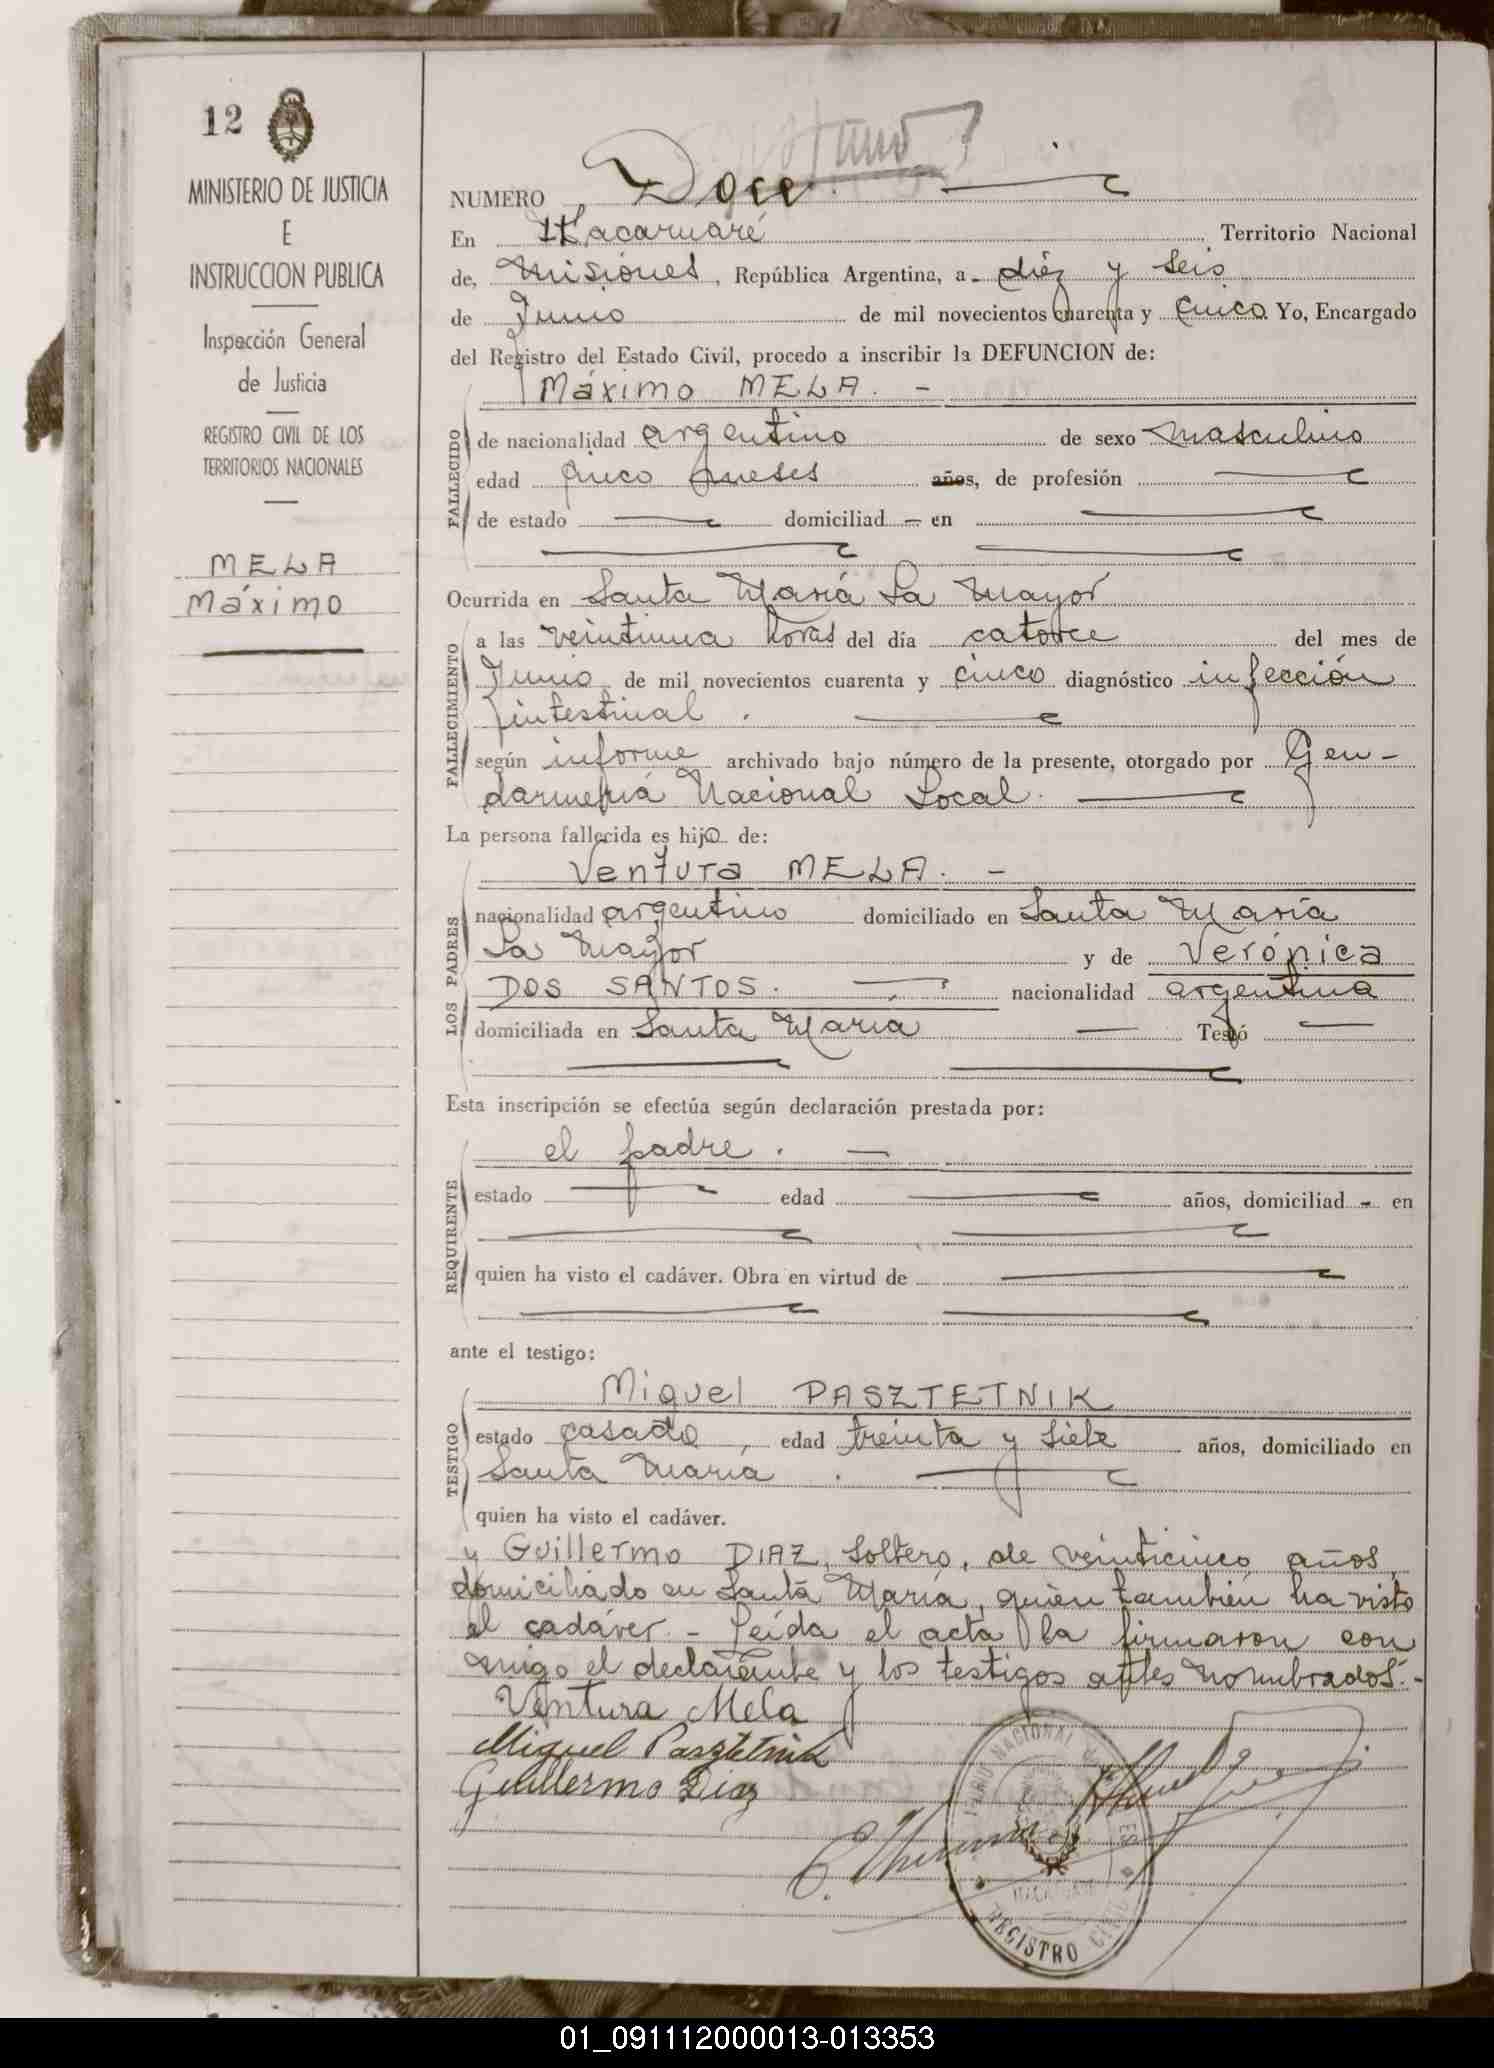 12
MINISTERIO DE JUSTICIA
E
INSTRUCCION PUBLICA
Inspección General
de Justicia
REGISTRO CIVIL DE LOS
TERRITORIOS NACIONALES
MELA
Máximo
NUMERO Doce
En Itacaruaré Territorio Nacional
de, Misiones, República Argentina, a diéz y seis
de Junio de mil novecientos cuarenta y cinco Yo, Encargado
del Registro del Estado Civil, procedo a inscribir la DEFUNCION de:
Máximo MELA. -
FALLECIDO
de nacionalidad argentino de sexo masculino
edad cinco meses años, de profesión
de estado domiciliad - en
Ocurrida en Santa María La Mayor
FALLECIMIENTO
a las veintiuna horas del día catorce del mes de
Junio de mil novecientos cuarenta y cinco diagnóstico infección
intestinal .
según informe archivado bajo número de la presente, otorgado por Gen-
darmería Nacional Local.
La persona fallecida es hijo de:
Ventura MELA. -
LOS PADRES
nacionalidad argentino domiciliado en Santa María
La Mayor y de Verónica
DOS SANTOS. nacionalidad argentina
domiciliada en Santa María Testó
Esta inscripción se efectúa según declaración prestada por:
el padre. -
REQUIRENTE
estado edad años, domiciliad - en
quien ha visto el cadáver. Obra en virtud de
ante el testigo:
Miguel PASZTETNIK
TESTIGO
estado casado, edad treinta y siete años, domiciliado en
Santa María .
quien ha visto el cadáver.
y Guillermo DIAZ, soltero, de veinticinco años,
domiciliado en Santa María, quién también ha visto
el cadáver. - Leída el acta la firmaron con
migo el declarante y los testigos antes nombrados. -
Ventura Mela
Miguel Pasztetnik
Guillermo Diaz
REGISTRO CIVIL
01_091112000013-013353